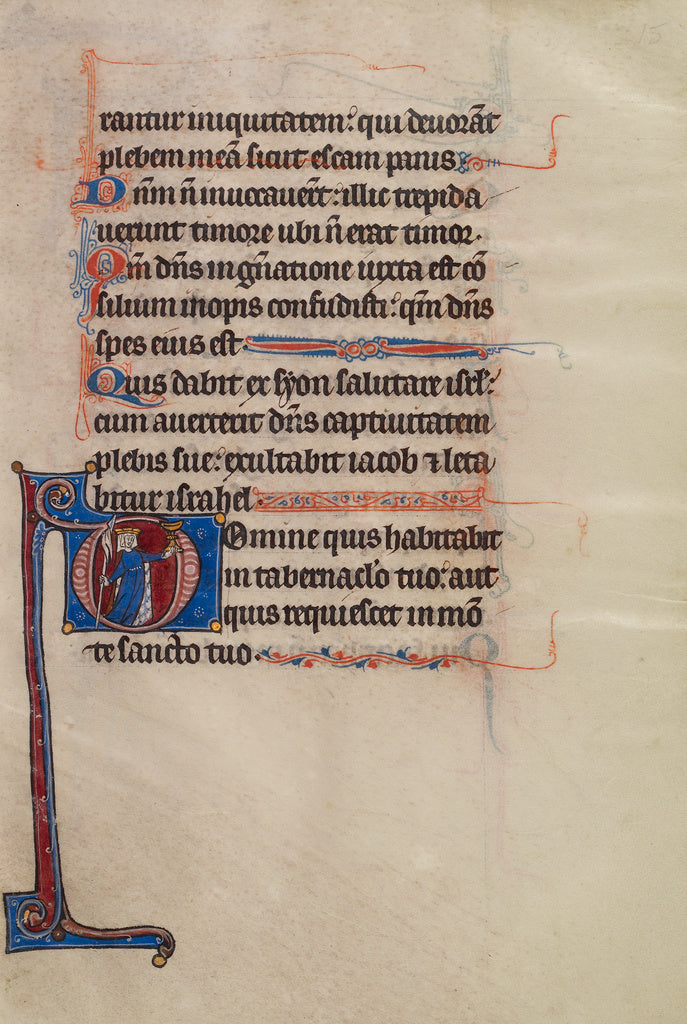 15
rantur iniquitatem: qui deuorāt
plebem meā sicut escam panis
Dn̄m n̄ inuocauer̄t: illic trepida
uerunt timore ubi n̄ erat timor.
Qm̄ dn̄s in gn̄atione iusta est cō
silium inopis confudisti: qm̄ dn̄s
spes eius est.
Quis dabit ex syon salutare isrl̄:
cum auerterit dn̄s captiuitatem
plebis sue: exultabit iacob ⁊ leta
bitur israhel.
Domine quis habitabit
in tabernaclo tuo: aut
quis requiescet in mō
te sancto tuo.